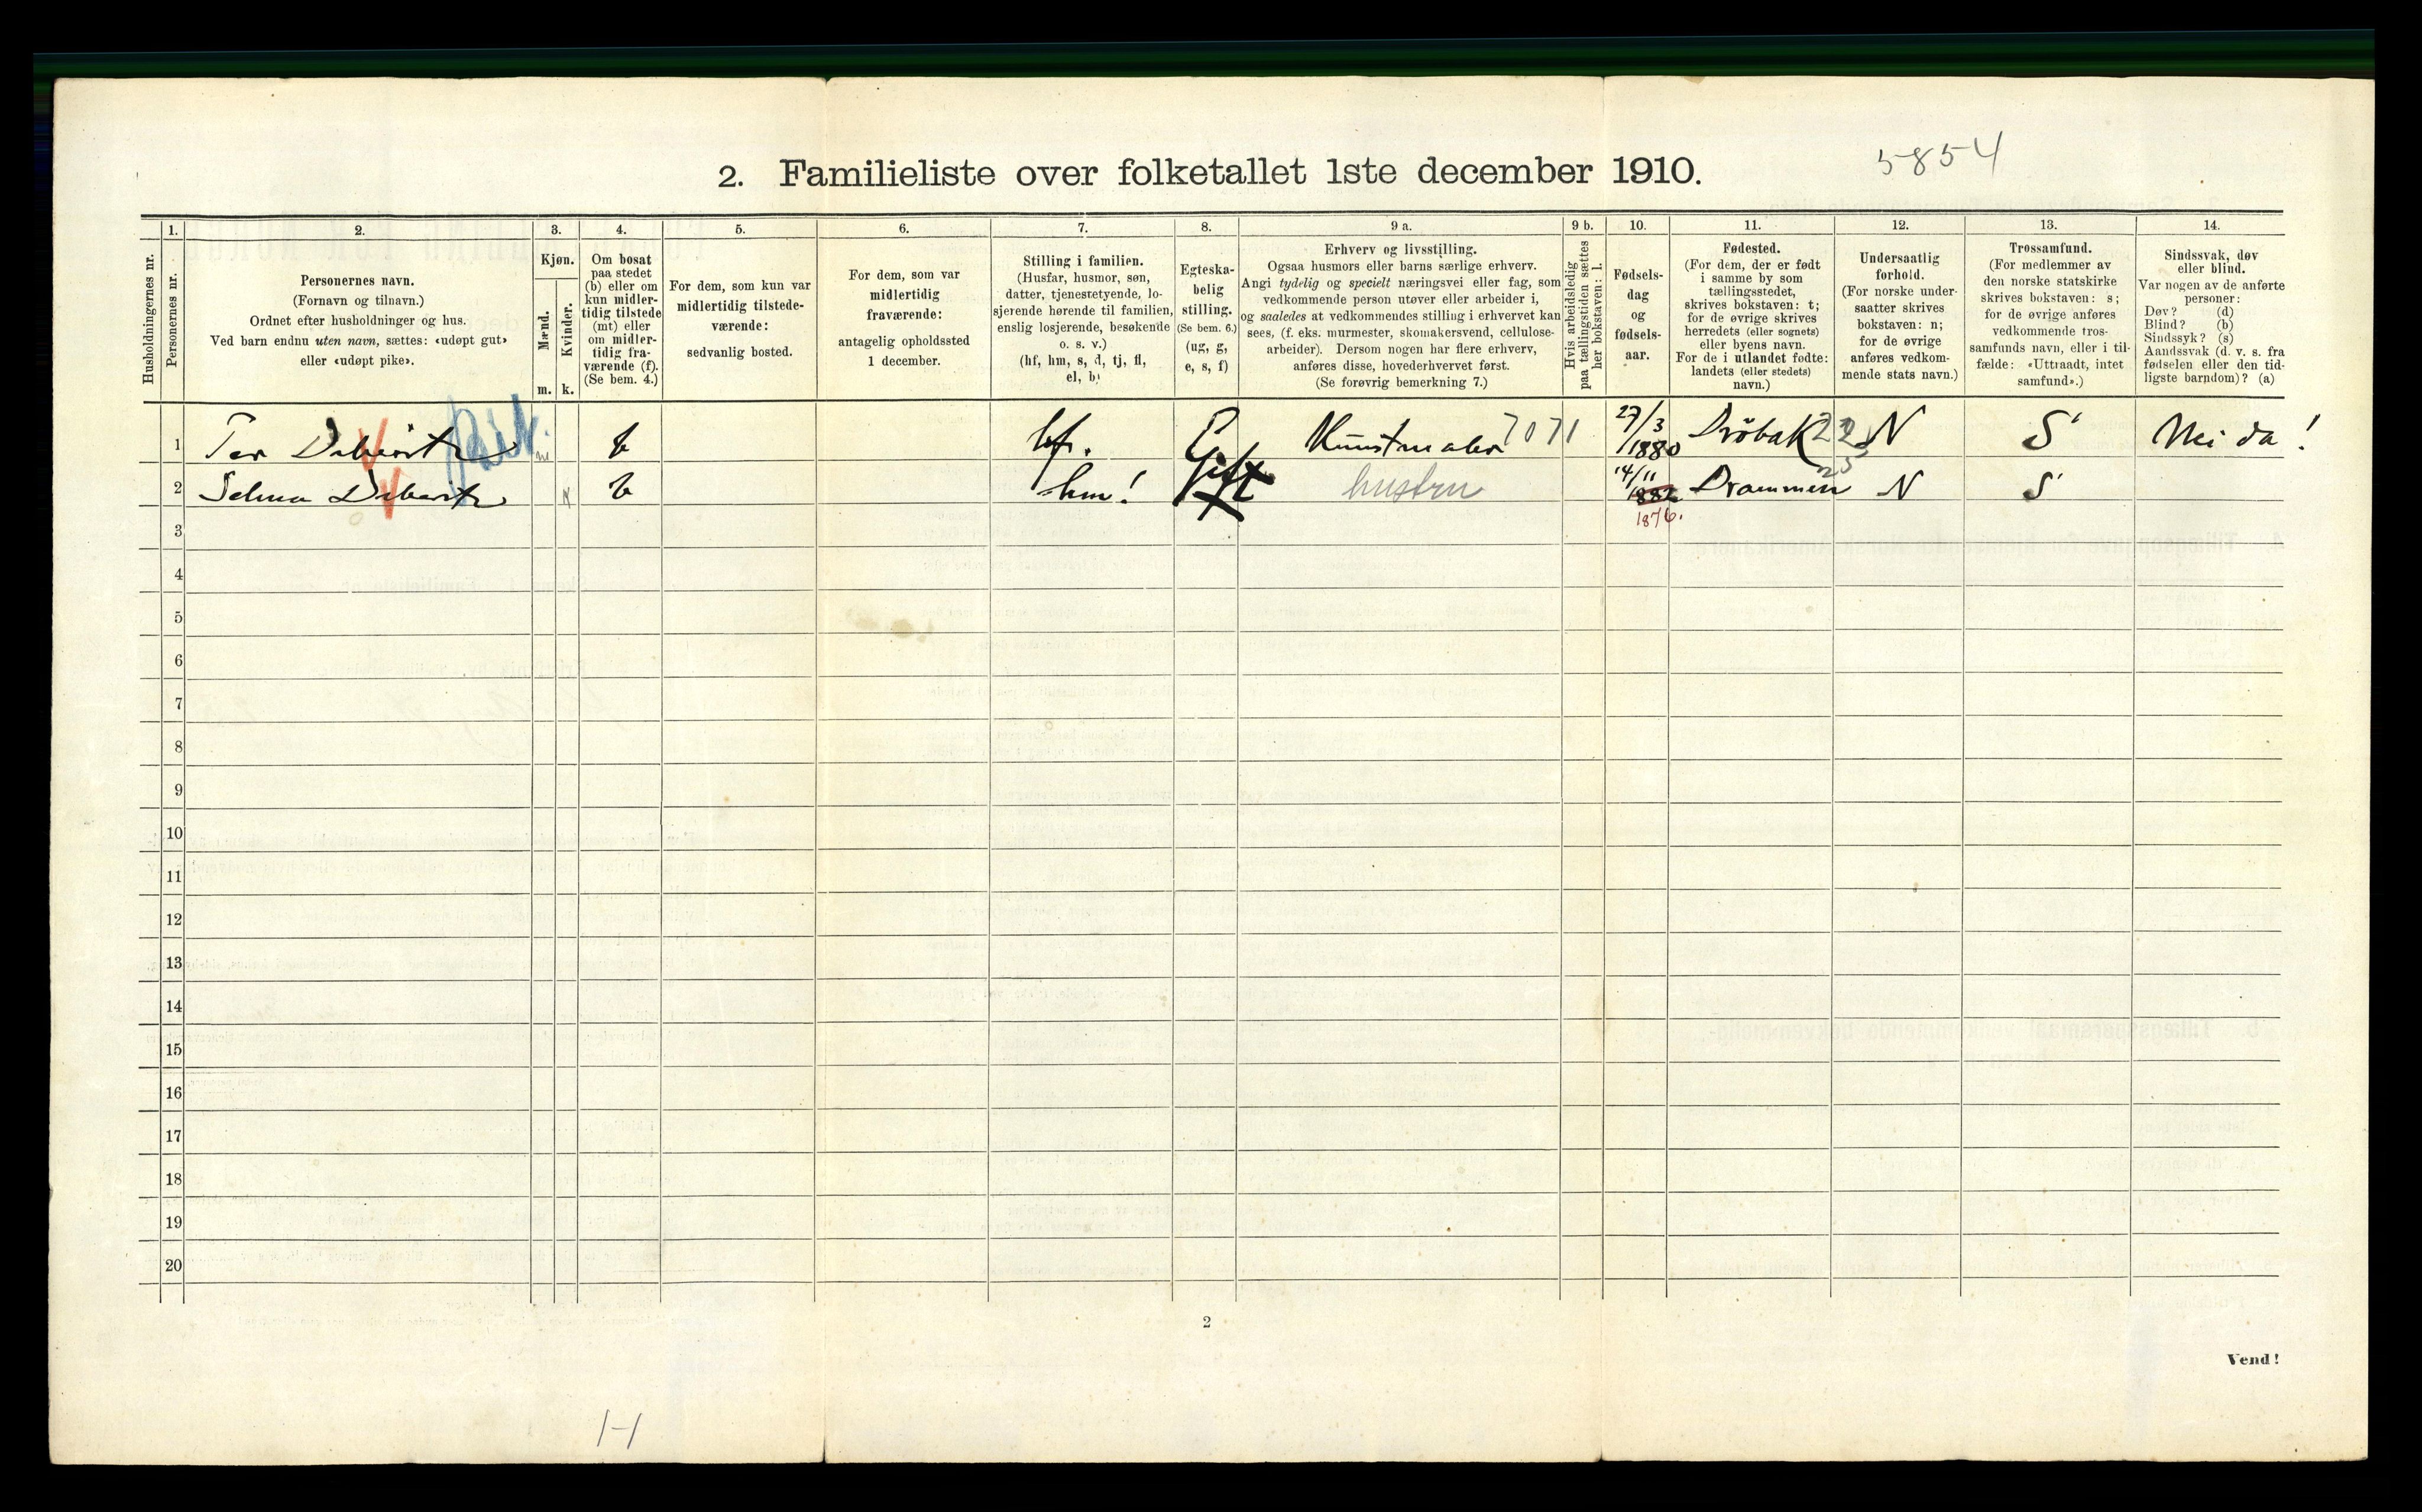 5854
2. Familieliste over folketallet 1ste december 1910.
Husholdningernes nr.
1.
Personernes nr.
2.
Personernes navn.
(Fornavn og tilnavn.)
Ordnet efter husholdninger og hus.
Ved barn endnu uten navn, sættes: «udøpt gut»
eller «udøpt pike».
3.
Kjøn.
Mænd.
m.
Kvinder.
k.
4.
Om bosat
paa stedet
(b) eller om
kun midler-
tidig tilstede
(mt) eller
om midler-
tidig fra-
værende (f).
(Se bem. 4.)
5.
For dem, som kun var
midlertidig tilstede-
værende:
sedvanlig bosted.
6.
For dem, som var
midlertidig
fraværende:
antagelig opholdssted
1 december.
7.
Stilling i familien.
(Husfar, husmor, søn,
datter, tjenestetyende, lo-
sjerende hørende til familien,
enslig losjerende, besøkende
o. s. v.)
(hf, hm, s, d, tj, fl,
el, b)
8.
Egteska-
belig
stilling.
(Se bem. 6.)
(ug, g,
e, s, f)
9 a.
Erhverv og livsstilling.
Ogsaa husmors eller barns særlige erhverv.
Angi tydelig og specielt næringsvei eller fag, som
vedkommende person utøver eller arbeider i,
og saaledes at vedkommendes stilling i erhvervet kan
sees, (f. eks. murmester, skomakersvend, cellulose-
arbeider). Dersom nogen har flere erhverv,
anføres disse, hovederhvervet først.
(Se forøvrig bemerkning 7.)
9 b.
Hvis arbeidsledig
paa tællingstiden sættes
her bokstaven: l.
10.
Fødsels-
dag
og
fødsels-
aar.
11.
Fødested.
(For dem, der er født
i samme by som
tællingsstedet,
skrives bokstaven: t;
for de øvrige skrives
herredets (eller sognets)
eller byens navn.
For de i utlandet fødte:
landets (eller stedets)
navn.)
12.
Undersaatlig
forhold.
(For norske under-
saatter skrives
bokstaven: n;
for de øvrige
anføres vedkom-
mende stats navn.)
13.
Trossamfund.
(For medlemmer av
den norske statskirke
skrives bokstaven: s;
for de øvrige anføres
vedkommende tros-
samfunds navn, eller i til-
fælde: «Uttraadt, intet
samfund».)
14.
Sindssvak, døv
eller blind.
Var nogen av de anførte
personer:
Døv? (d)
Blind? (b)
Sindssyk? (s)
Aandssvak (d. v. s. fra
fødselen eller den tid-
ligste barndom)? (a)
1 Per Deberitz m b hf. Gift Kunstmaler 7071 27/3 1880 Dröbak 22 N S Nei da!
2 Selma Deberitz k b hm! hustru 14/11 1882 Drammen 25 N S
1876.
3
4
5
6
7
8
9
10
11
12
13
14
15
16
17
18
19
20
2
Vend!